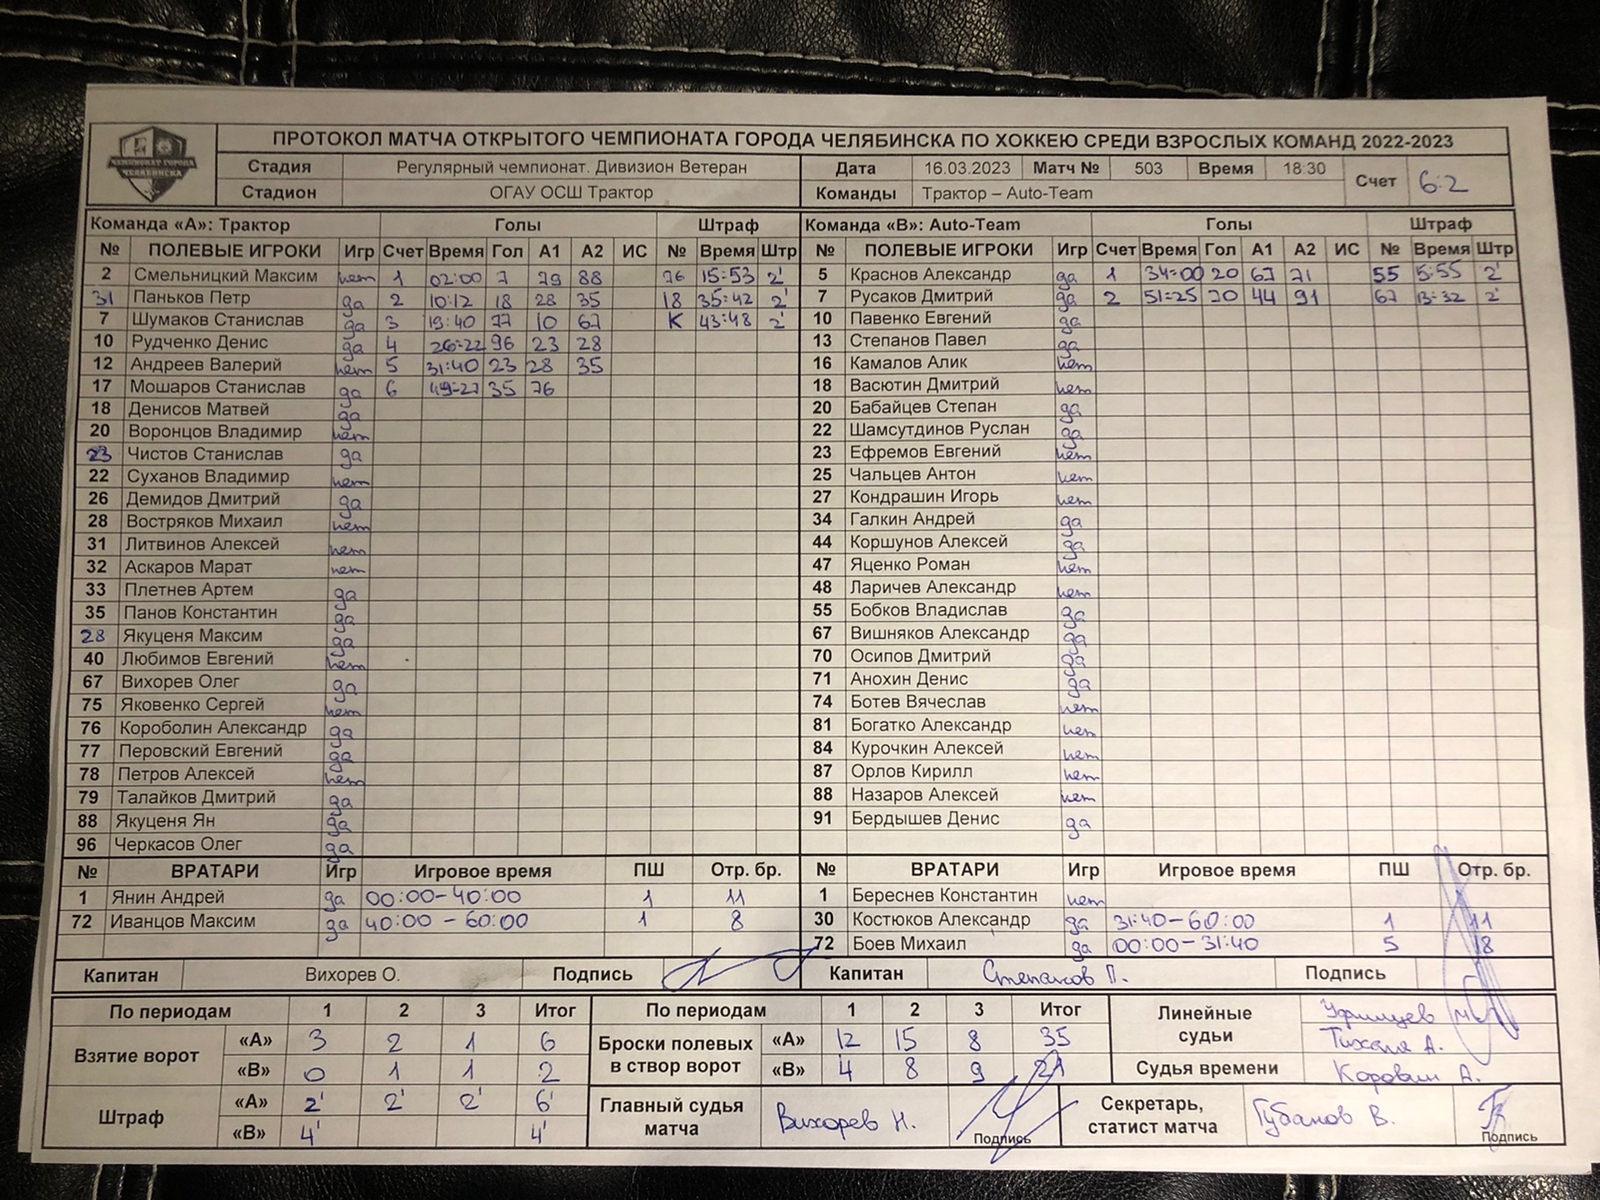 ЧЕМПИОНАТ ГОРОДА ЧЕЛЯБИНСКА
ПРОТОКОЛ МАТЧА ОТКРЫТОГО ЧЕМПИОНАТА ГОРОДА ЧЕЛЯБИНСКА ПО ХОККЕЮ СРЕДИ ВЗРОСЛЫХ КОМАНД 2022-2023
Стадия Регулярный чемпионат. Дивизион Ветеран Дата 16.03.2023 Матч № 503 Время 18:30 Счет 6:2
Стадион ОГАУ ОСШ Трактор Команды Трактор – Auto-Team
Команда «А»: Трактор Голы Штраф Команда «В»: Auto-Team Голы Штраф
№ ПОЛЕВЫЕ ИГРОКИ Игр Счет Время Гол А1 А2 ИС № Время Штр № ПОЛЕВЫЕ ИГРОКИ Игр Счет Время Гол А1 А2 ИС № Время Штр
2 Смельницкий Максим нет 1 02:00 7 79 88 76 15:53 2' 5 Краснов Александр да 1 34:00 20 67 71 55 5:55 2'
31 Паньков Петр да 2 10:12 18 28 35 18 35:42 2' 7 Русаков Дмитрий да 2 51:25 70 44 91 67 13:32 2'
7 Шумаков Станислав да 3 19:40 77 10 67 К 43:48 2' 10 Павенко Евгений да
10 Рудченко Денис да 4 26:22 96 23 28 13 Степанов Павел да
12 Андреев Валерий нет 5 31:40 23 28 35 16 Камалов Алик нет
17 Мошаров Станислав да 6 49:27 35 76 18 Васютин Дмитрий нет
18 Денисов Матвей да 20 Бабайцев Степан да
20 Воронцов Владимир нет 22 Шамсутдинов Руслан да
23 Чистов Станислав да 23 Ефремов Евгений нет
22 Суханов Владимир нет 25 Чальцев Антон нет
26 Демидов Дмитрий да 27 Кондрашин Игорь нет
28 Востряков Михаил нет 34 Галкин Андрей да
31 Литвинов Алексей нет 44 Коршунов Алексей да
32 Аскаров Марат нет 47 Яценко Роман нет
33 Плетнев Артем да 48 Ларичев Александр нет
35 Панов Константин да 55 Бобков Владислав да
28 Якуценя Максим да 67 Вишняков Александр да
40 Любимов Евгений нет 70 Осипов Дмитрий да
67 Вихорев Олег да 71 Анохин Денис да
75 Яковенко Сергей нет 74 Ботев Вячеслав нет
76 Короболин Александр да 81 Богатко Александр нет
77 Перовский Евгений да 84 Курочкин Алексей нет
78 Петров Алексей нет 87 Орлов Кирилл нет
79 Талайков Дмитрий да 88 Назаров Алексей нет
88 Якуценя Ян да 91 Бердышев Денис да
96 Черкасов Олег да
№ ВРАТАРИ Игр Игровое время ПШ Отр. бр. № ВРАТАРИ Игр Игровое время ПШ Отр. бр.
1 Янин Андрей да 00:00-40:00 1 11 1 Береснев Константин нет
72 Иванцов Максим да 40:00 - 60:00 1 8 30 Костюков Александр да 31:40-60:00 1 11
72 Боев Михаил да 00:00-31:40 5 18
Капитан Вихорев О. Подпись Капитан Степанов П. Подпись
По периодам 1 2 3 Итог По периодам 1 2 3 Итог Линейные судьи Уфимцев
Взятие ворот «А» 3 2 1 6 Броски полевых в створ ворот «А» 12 15 8 35 А.
«В» 0 1 1 2 «В» 4 8 9 21 Судья времени Коровин А.
Штраф «А» 2' 2' 2' 6' Главный судья матча Вихорев Н. Подпись Секретарь, статист матча Губанов В. Подпись
«В» 4' 4'